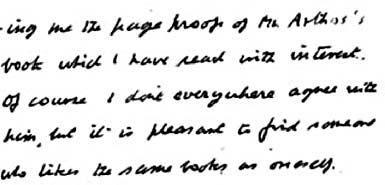 -ing me the page proofs of Mr Arthos's
book which I have read with interest.
Of course I don't everywhere agree with
him, but it is pleasant to find someone
who likes the same books as oneself.